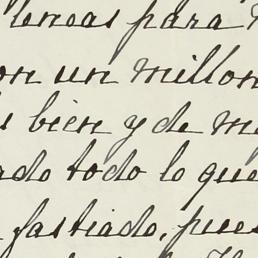 lencas para
on un millon
s bien y de m
ado todo lo que
fastiado, pues